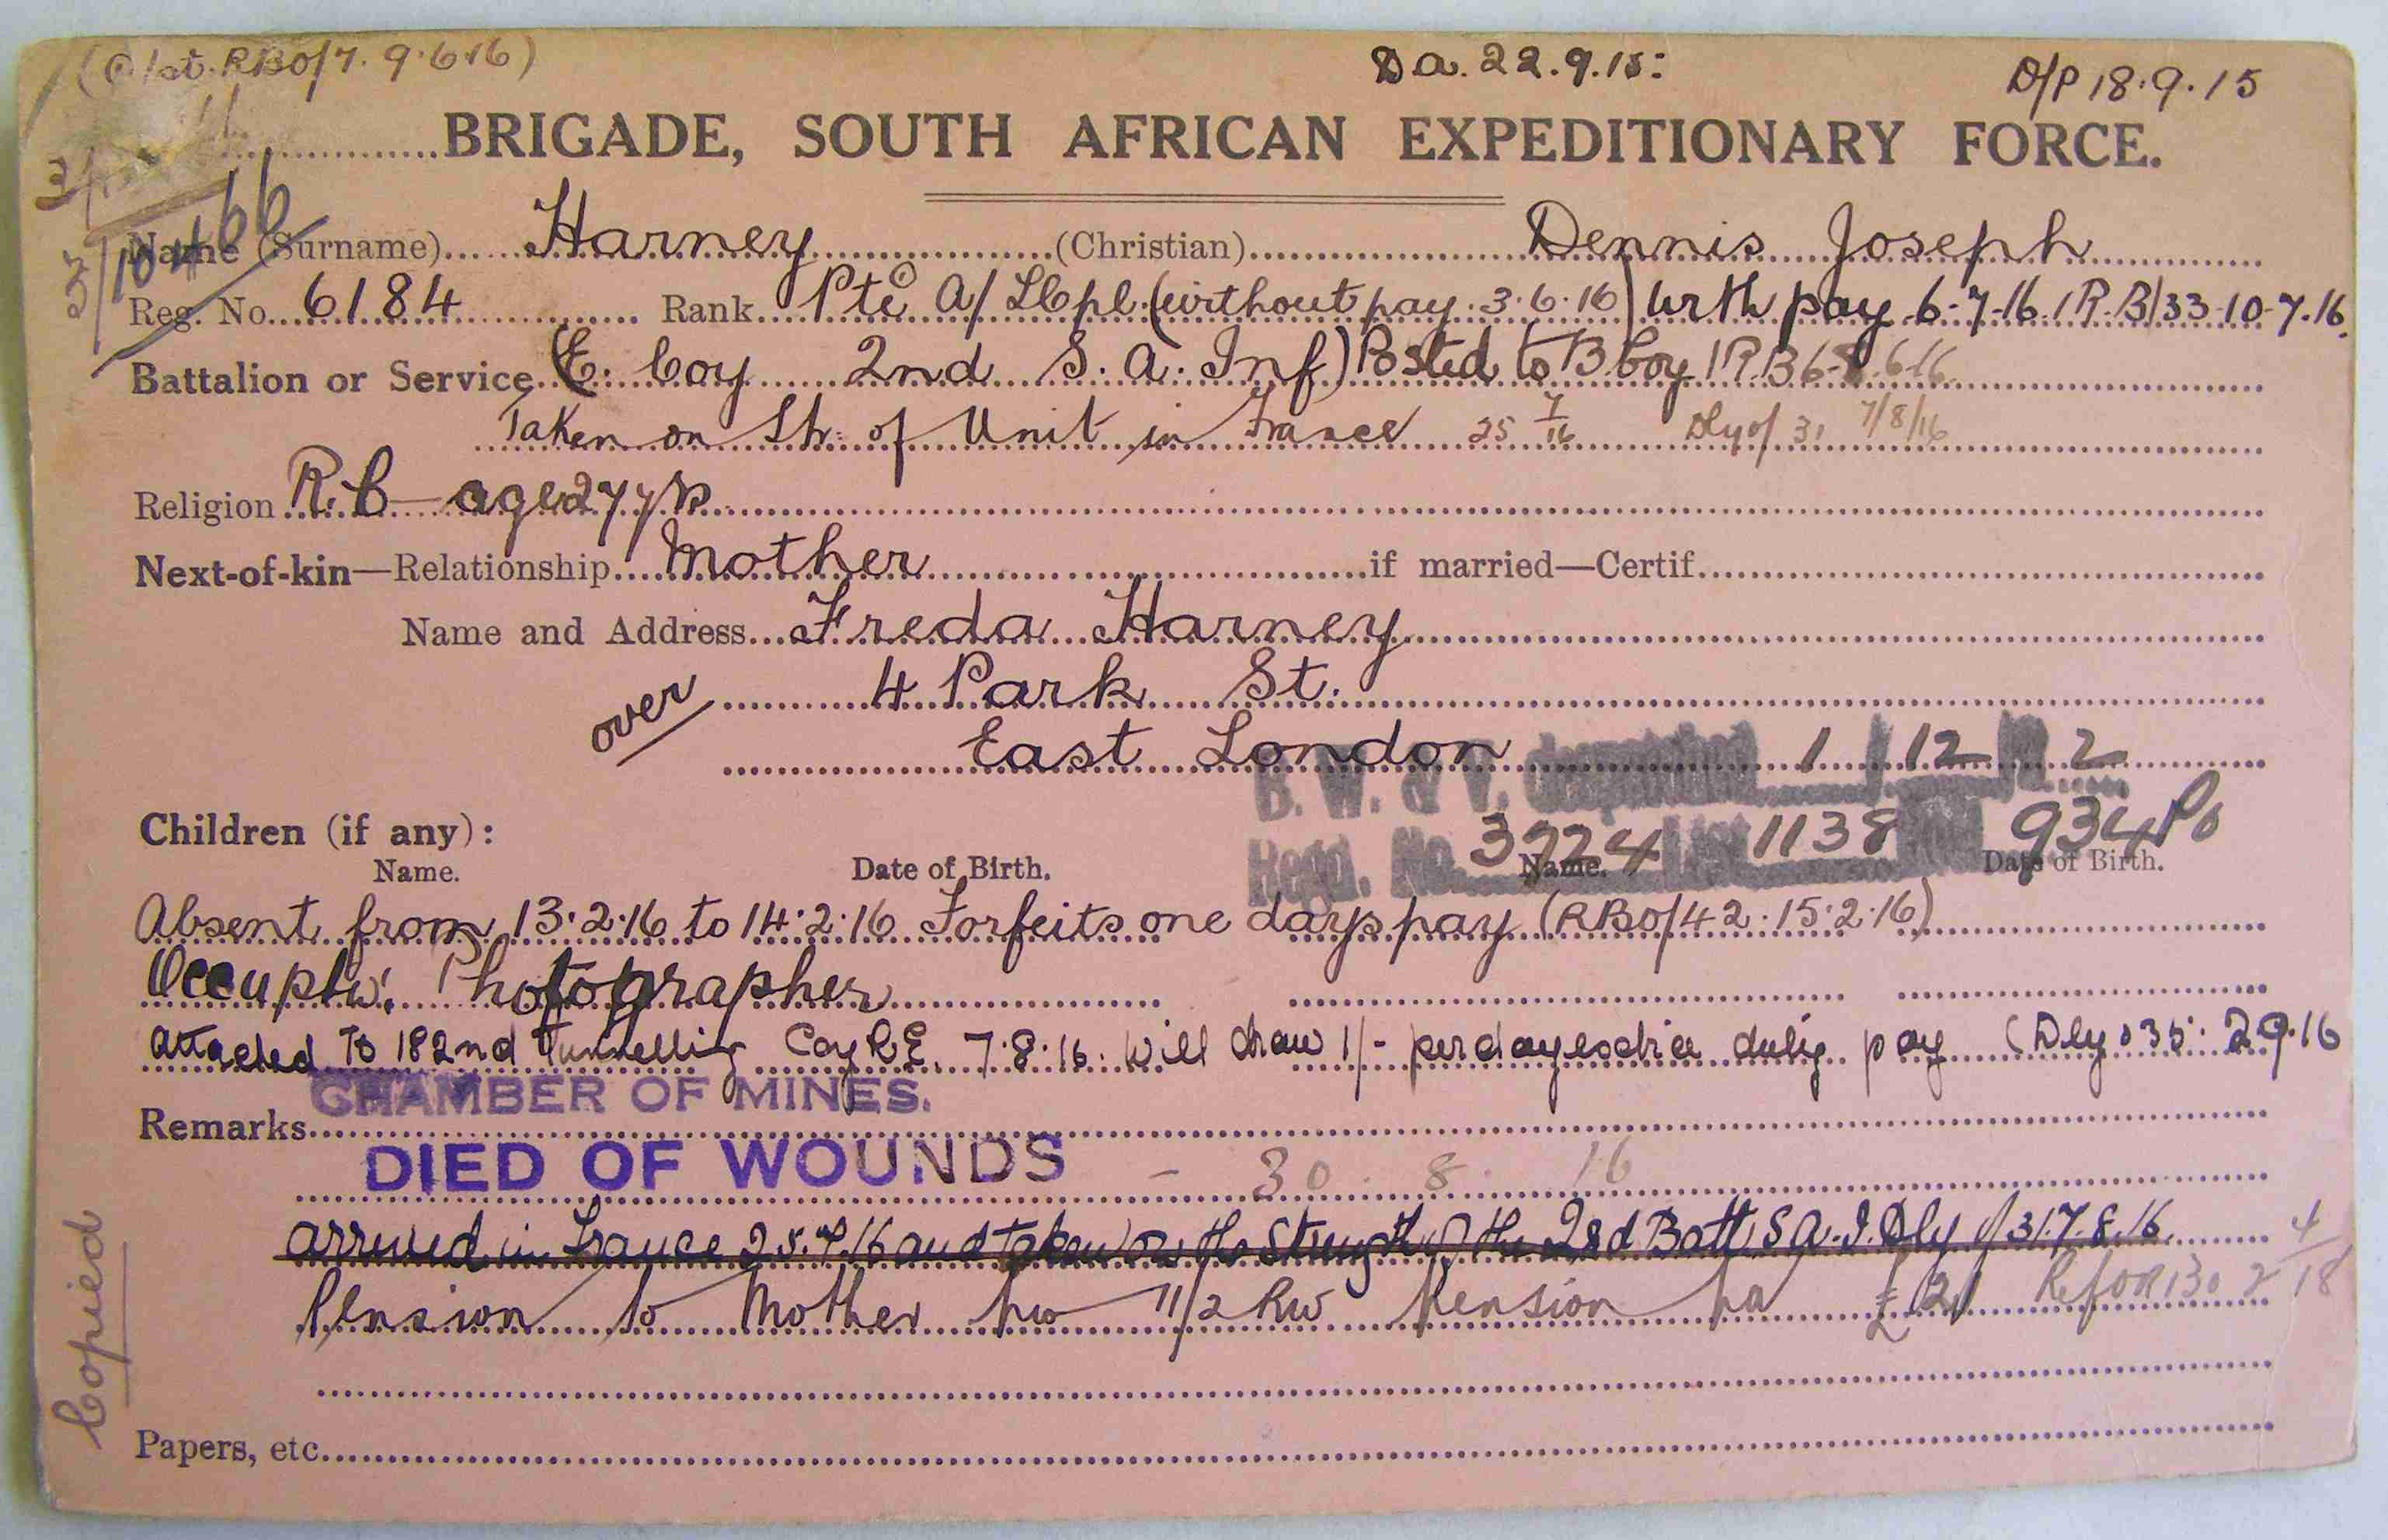 (© /at. RBO/7. 9.6.16)
D a. 22.9.15:
D/P 18.9.15
BRIGADE, SOUTH AFRICAN EXPEDITIONARY FORCE.
Name (Surname) Harney (Christian) Dennis Joseph
Reg. No. 6184 Rank Pte © A/ LCpl. (without pay. 3.6.16) with pay 6-7-16. 1R.B/33-10-7.16.
Battalion or Service (E. Coy 2nd S. A. Inf) Posted to B Coy 1R.B6-8.6-16
Taken on Str: of Unit in France 25 7/16 Dly of 31 7/8/16
Religion R.C — aged 27 yrs
Next-of-kin—Relationship Mother if married—Certif.
Name and Address Freda Harney
over 4 Park St.
East London
B. W. & V. despatched 1 12 2
Regd. No. 3724 List 1138 934
Children (if any):
Name. Date of Birth. Name. Date of Birth.
Absent from 13.2.16 to 14.2.16 Forfeits one days pay (RBO/42.15.2.16)
Occuptn: Photographer
Attached To 182nd Tunnelling Coy R.E. 7.8.16. Will draw 1/- per day extra duty pay (Dly o 35. 2.9.16
CHAMBER OF MINES.
Remarks
DIED OF WOUNDS - 30. 8. 16
arrived in France 25.7.16 and taken on the Strength of the 2nd Batt S.A.I. Dly of 31.7.8.16
Pension to Mother 11/2 Pension pa £ 21
Papers, etc.
Copied